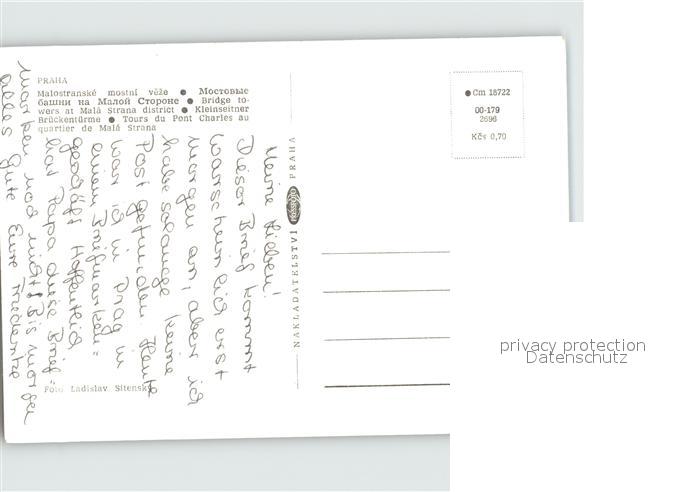 PRAHA
Malostranské mostní věže ● Мостовые
башни на Малой Стороне ● Bridge to-
wers at Malá Strana district ● Kleinseitner
Brückentürme ● Tours du Pont Charles au
quartier de Malá Strana
Meine Lieben!
Dieser Brief kommt
warscheinlich erst
morgen an, aber ich
habe solange keine
Post gefunden. Heute
war ich in Prag in
einem Briefmarken=
geschäft Hoffentlich
hat Papa diese Brief=
marken noch nicht! Bis morgen
alles Gute Eure Friederike
Foto Ladislav Sitenský
NAKLADATELSTVÍ PRESSFOTO PRAHA
● Cm 18722
00-179
2696
Kčs 0,70
privacy protection
Datenschutz